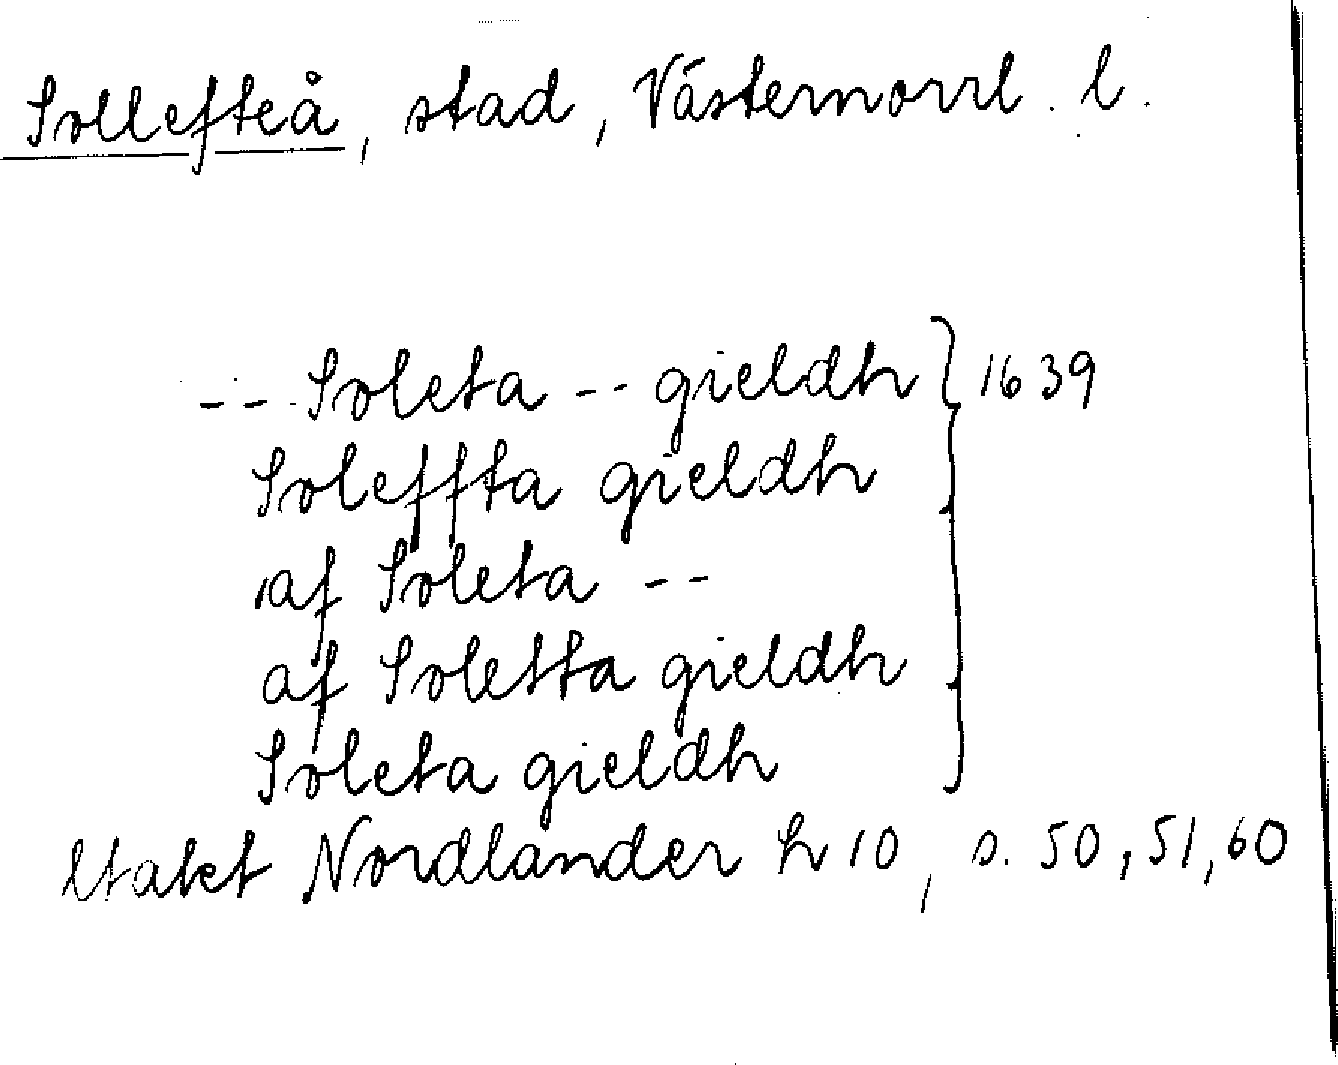 Sollefteå, stad, Västernorrl. l.
-- Soleta -- gieldh } 1639
Soleffta gieldh
af Soleta --
af Soletta gieldh
Soleta gieldh
Nordlander h 10, s. 50, 51, 60